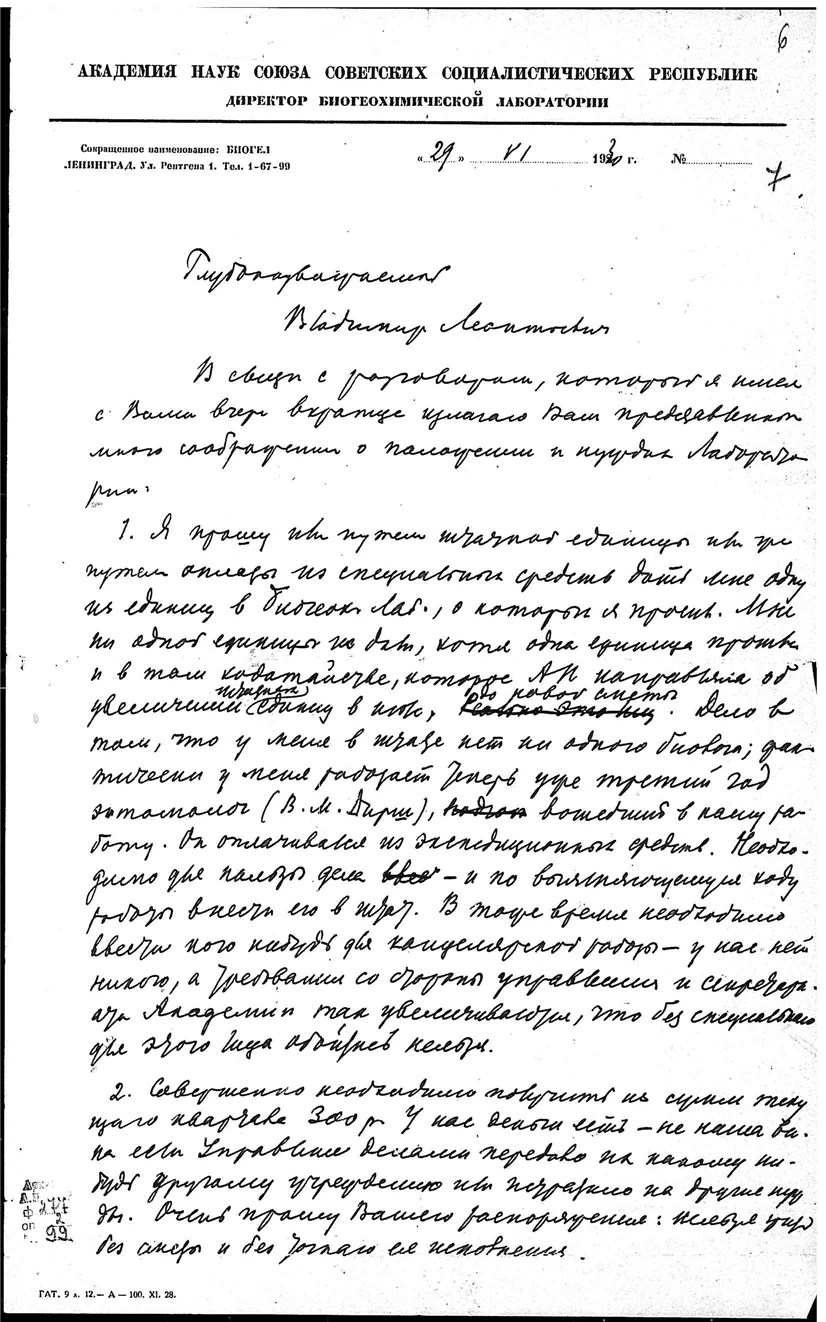 6
АКАДЕМИЯ НАУК СОЮЗА СОВЕТСКИХ СОЦИАЛИСТИЧЕСКИХ РЕСПУБЛИК
ДИРЕКТОР БИОГЕОХИМИЧЕСКОЙ ЛАБОРАТОРИИ
Сокращенное наименование: БИОГЕЛ
ЛЕНИНГРАД. Ул. Рентгена 1. Тел. 1-67-99
« 29 » VI 1930 г. №
7
Глубокоуважаемый
Владимир Леонтьевич
В связи с разговором, который я имел
с Вами вчера вкратце излагаю Вам представленные
мною соображения о положении и нуждах Лаборато-
рии:
1. Я прошу или путем штатной единицы или же
путем оплаты из специальных средств дать мне одну
из единиц в Биогеох. Лаб., о которых я просил. Мне
ни одной единицы не дали, хотя одна единица прошла
и в том ходатайстве, которое АН направляла об
увеличении штатных единиц в июле, до новой сметы. Дело в
том, что у меня в штате нет ни одного биолога; фак-
тически у меня работает теперь уже третий год
энтомолог (В. М. Дирш), вошедший в нашу ра-
боту. Он оплачивался из экспедиционных средств. Необхо-
димо для пользы дела – и по выясняющемуся ходу
работы внести его в штат. В то же время необходимо
ввести кого нибудь для канцелярской работы – у нас нет
никого, а требования со стороны управления и секретари-
ата Академии так увеличиваются, что без специального
для этого лица обойтись нельзя.
2. Совершенно необходимо получить из сумм теку
щаго квартала 300 р. У нас деньги есть – не наша ви-
на если Управление делами передало их какому ни-
будь другому учреждению или истратило на другие нуж
ды. Очень прошу Вашего распоряжения: нельзя жить
без сметы и без точнаго ея исполнения.
ф 277
оп 2
99
ГАТ. 9 л. 12.— А — 100. XI. 28.